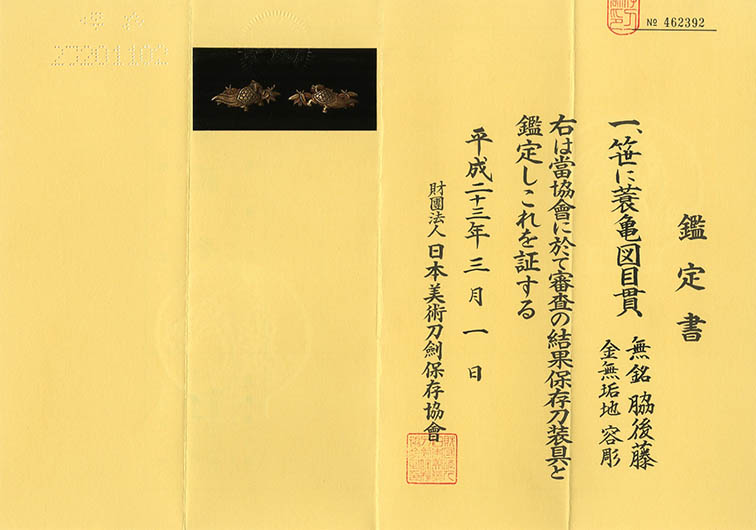 № 462392
鑑定書
一、笹に蓑亀図目貫
無銘 脇後藤
金無垢地 容彫
右は當協會に於て審査の結果保存刀装具と
鑑定しこれを証する
平成二十三年三月一日
財團法人 日本美術刀劍保存協會